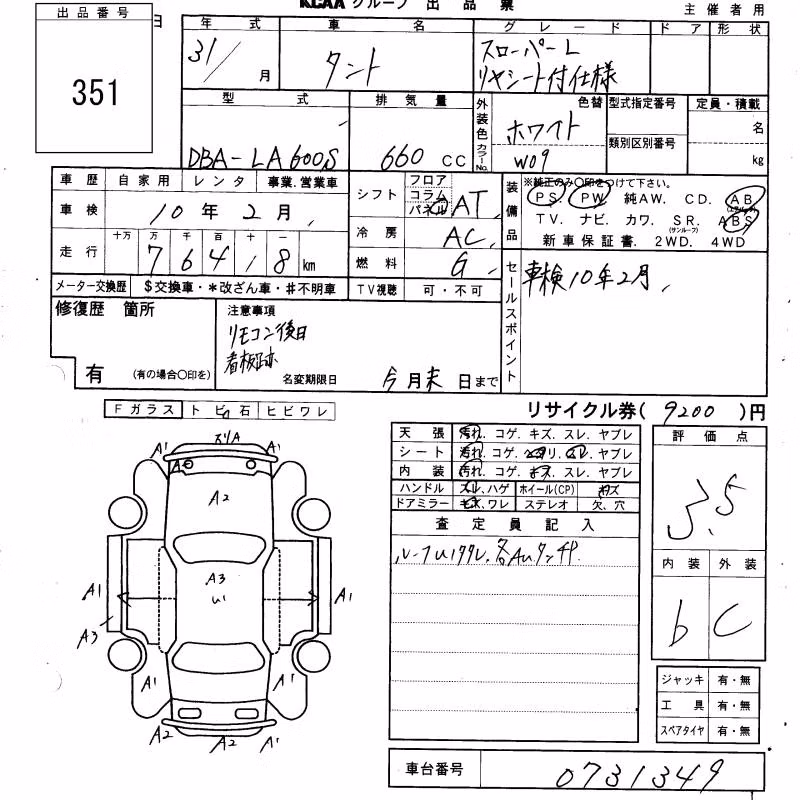 KCAA グループ 出品票
主催者用
出品番号
351
日
年式 車名 グレード ドア 形状
31/ 月
タント
スローパーL
リヤシート付仕様
型式 排気量 外装色 カラーNo. 色替 型式指定番号 定員・積載
DBA-LA600S
660 CC
ホワイト
W09
類別区別番号
名
kg
車歴 自家用 レンタ 事業.営業車
車検 10年2月
走行 十万 万 千 百 十 一
76418 km
メーター交換歴 $交換車・*改ざん車・#不明車
シフト フロア コラム パネル AT
冷房 AC
燃料 G
TV視聴 可・不可
装備品
※純正のみ〇印をつけて下さい。
PS. PW. 純AW. CD. AB
TV. ナビ. カワ. SR. ABS
(サンルーフ)
新車保証書. 2WD. 4WD
セールスポイント
車検10年2月
修復歴 箇所
有 (有の場合〇印を)
注意事項
リモコン後日
看板跡
名変期限日 今月末日まで
リサイクル券( 9200 )円
Fガラス トビ石 ヒビワレ
天張 汚れ. コゲ. キズ. スレ. ヤブレ
シート 汚れ. コゲ. スレ. ヤブレ
内装 汚れ. コゲ. キズ. スレ. ヤブレ
ハンドル スレ.ハゲ ホイール(CP) キズ
ドアミラー キズ.ワレ ステレオ 欠.穴
査定員記入
評価点
3.5
内装 外装
b C
A1 A1
A2
A3
A1 A1
A3
A1 A1
A2 A2 A1
ジャッキ 有・無
工具 有・無
スペアタイヤ 有・無
車台番号 0731349